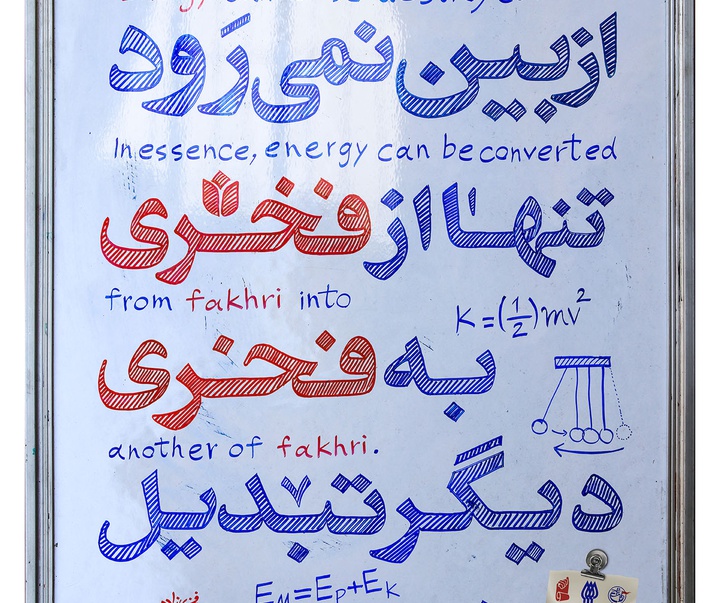 از بین نمی‌رَود
In essence, energy can be converted
تنها از فخری
from fakhri into
K=(1/2)mv²
به فخری
another of fakhri.
دیگر تبدیل
Eᴍ=Eᴘ+Eᴋ